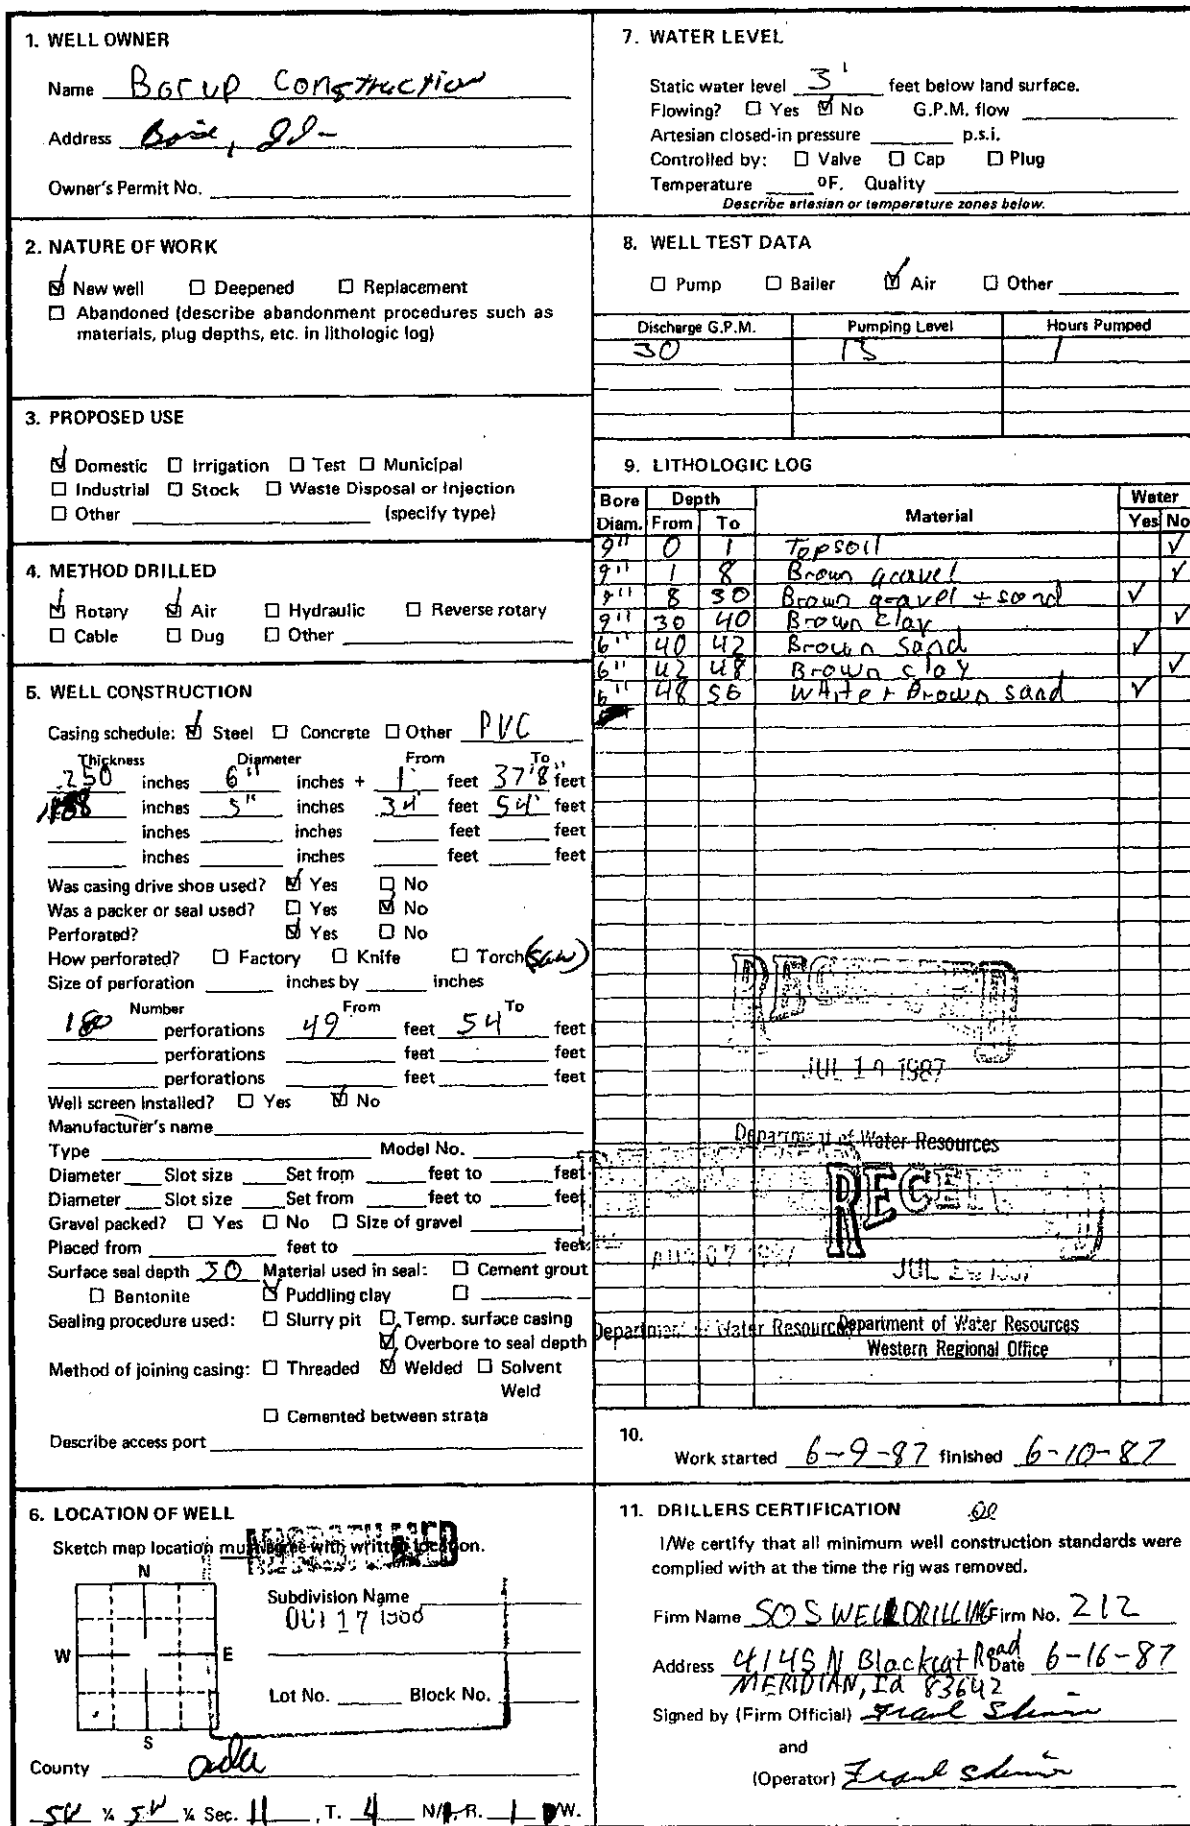 1. WELL OWNER
Name Borup Construction
Address Boise, Id-
Owner's Permit No.
2. NATURE OF WORK
☑ New well ☐ Deepened ☐ Replacement
☐ Abandoned (describe abandonment procedures such as
materials, plug depths, etc. in lithologic log)
3. PROPOSED USE
☑ Domestic ☐ Irrigation ☐ Test ☐ Municipal
☐ Industrial ☐ Stock ☐ Waste Disposal or Injection
☐ Other (specify type)
4. METHOD DRILLED
☑ Rotary ☑ Air ☐ Hydraulic ☐ Reverse rotary
☐ Cable ☐ Dug ☐ Other
5. WELL CONSTRUCTION
Casing schedule: ☑ Steel ☐ Concrete ☐ Other PVC
Thickness Diameter From To
.250 inches 6" inches + 1' feet 37'8" feet
.188 inches 5" inches 34' feet 54' feet
inches inches feet feet
inches inches feet feet
Was casing drive shoe used? ☑ Yes ☐ No
Was a packer or seal used? ☐ Yes ☑ No
Perforated? ☑ Yes ☐ No
How perforated? ☐ Factory ☐ Knife ☐ Torch (Saw)
Size of perforation inches by inches
Number From To
180 perforations 49 feet 54 feet
perforations feet feet
perforations feet feet
Well screen installed? ☐ Yes ☑ No
Manufacturer's name
Type Model No.
Diameter Slot size Set from feet to feet
Diameter Slot size Set from feet to feet
Gravel packed? ☐ Yes ☐ No ☐ Size of gravel
Placed from feet to feet
Surface seal depth 30 Material used in seal: ☐ Cement grout
☐ Bentonite ☑ Puddling clay ☐
Sealing procedure used: ☐ Slurry pit ☐ Temp. surface casing
☑ Overbore to seal depth
Method of joining casing: ☐ Threaded ☑ Welded ☐ Solvent
Weld
☐ Cemented between strata
Describe access port
6. LOCATION OF WELL
Sketch map location must agree with written location.
N
W E
S
Subdivision Name
OCT 17 1988
Lot No. Block No.
County Ada
SW ¼ SW ¼ Sec. 11, T. 4 N/ R. 1 /W.
7. WATER LEVEL
Static water level 3' feet below land surface.
Flowing? ☐ Yes ☑ No G.P.M. flow
Artesian closed-in pressure p.s.i.
Controlled by: ☐ Valve ☐ Cap ☐ Plug
Temperature °F. Quality
Describe artesian or temperature zones below.
8. WELL TEST DATA
☐ Pump ☐ Bailer ☑ Air ☐ Other
Discharge G.P.M. Pumping Level Hours Pumped
30 15 1
9. LITHOLOGIC LOG
Bore Depth Water
Diam. From To Material Yes No
9" 0 1 Topsoil ✓
9" 1 8 Brown gravel ✓
9" 8 30 Brown gravel + sand ✓
9" 30 40 Brown clay ✓
6" 40 42 Brown sand ✓
6" 42 48 Brown clay ✓
6" 48 56 White + Brown sand ✓
RECEIVED
JUL 1987
Department of Water Resources
RECEI
AUG 07 1987
JUL 1987
Department of Water Resources
Department of Water Resources
Western Regional Office
10.
Work started 6-9-87 finished 6-10-87
11. DRILLERS CERTIFICATION
I/We certify that all minimum well construction standards were
complied with at the time the rig was removed.
Firm Name SOS WELL DRILLING Firm No. 212
Address 4145 N Blackcat Road Date 6-16-87
MERIDIAN, Id 83642
Signed by (Firm Official)
and
(Operator)